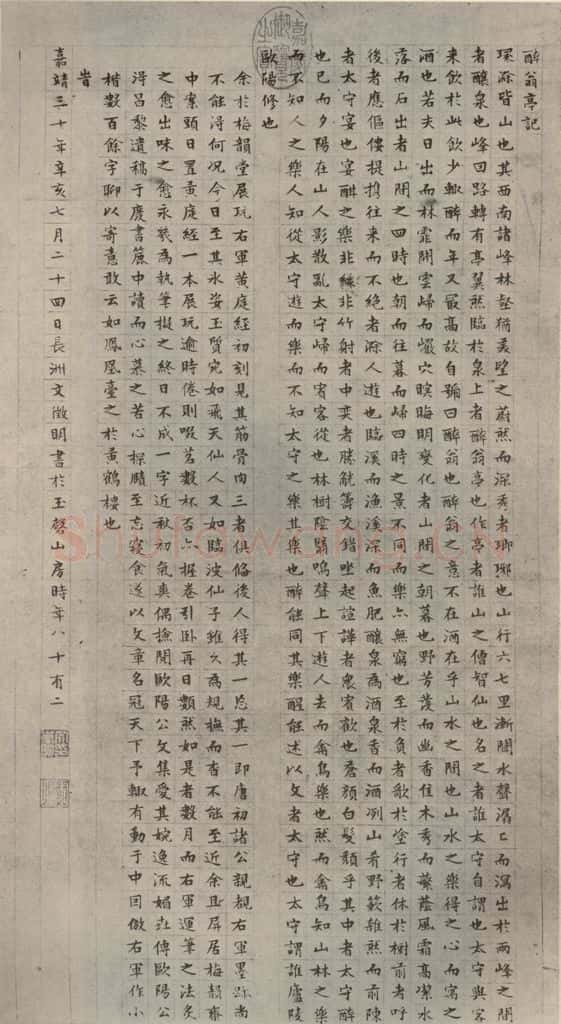 醉翁亭記
環滁皆山也其西南諸峰林壑猶美望之蔚然而深秀者瑯琊也山行六七里漸聞水聲潺〻而瀉出於兩峰之間
者釀泉也峰回路轉有亭翼然臨於泉上者醉翁亭也作亭者誰山之僧智仙也名之者誰太守自謂也太守與客
来飲於此飲少輒醉而年又最高故自號曰醉翁也醉翁之意不在酒在乎山水之間也山水之樂得之心而寓之
酒也若夫日出而林霏開雲歸而巖穴暝晦明變化者山間之朝暮也野芳發而幽香佳木秀而蘩蔭風霜高潔水
落而石出者山間之四時也朝而往暮而歸四時之景不同而樂亦無窮也至於負者歌於塗行者休於樹前者呼
後者應傴僂提攜往来而不絕者滁人遊也臨溪而漁溪深而魚肥釀泉為酒泉香而酒洌山肴野蔌雜然而前陳
者太守宴也宴酣之樂非絲非竹射者中奕者勝觥籌交錯坐起諠譁者衆賓歡也蒼顏白髮頹乎其中者太守醉
也已而夕陽在山人影散亂太守歸而賓客從也林樹陰翳鳴聲上下遊人去而禽鳥樂也然而禽鳥知山林之樂
而不知人之樂人知從太守遊而樂而不知太守之樂其樂也醉能同其樂醒能述以文者太守也太守謂誰廬陵
歐陽修也
余於梅韻堂展玩右軍黃庭經初刻見其筋骨肉三者俱備後人得其一忘其一即唐初諸公親覩右軍墨跡尚
不能淂何況今日至其氷姿玉質宛如飛天仙人又如臨波仙子雖久為規橅而杳不能至近余且屏居梅韻齋
中案頭日置黃庭經一本展玩逾時倦則啜茗數杯否亦握卷引卧再日數然如是者數月而右軍運筆之法炙
之愈出味之愈永幾為執筆擬之終日不成一字近秋初氣爽偶撿閱歐陽公文集愛其婉逸流媚世傳歐陽公
淂昌黎遺稿于廢書簏中讀而心慕之苦心探賾至忘寢食遂以文章名冠天下予輒有動于中因倣右軍作小
楷數百餘字聊以寄意敢云如鳳凰臺之於黃鶴樓也
旹
嘉靖三十年辛亥七月二十四日長洲文徵明書於玉磬山房時年八十有二